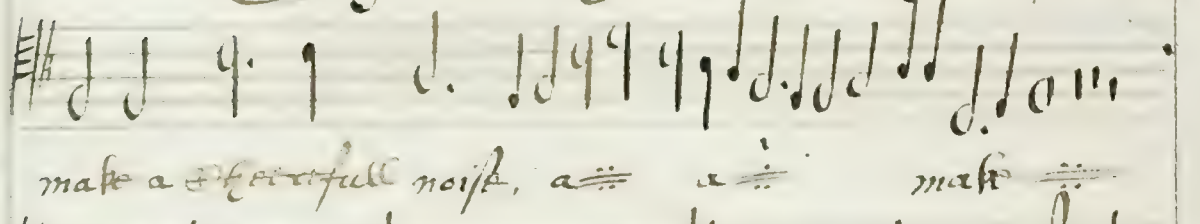 make a cheerefull noise, a a make